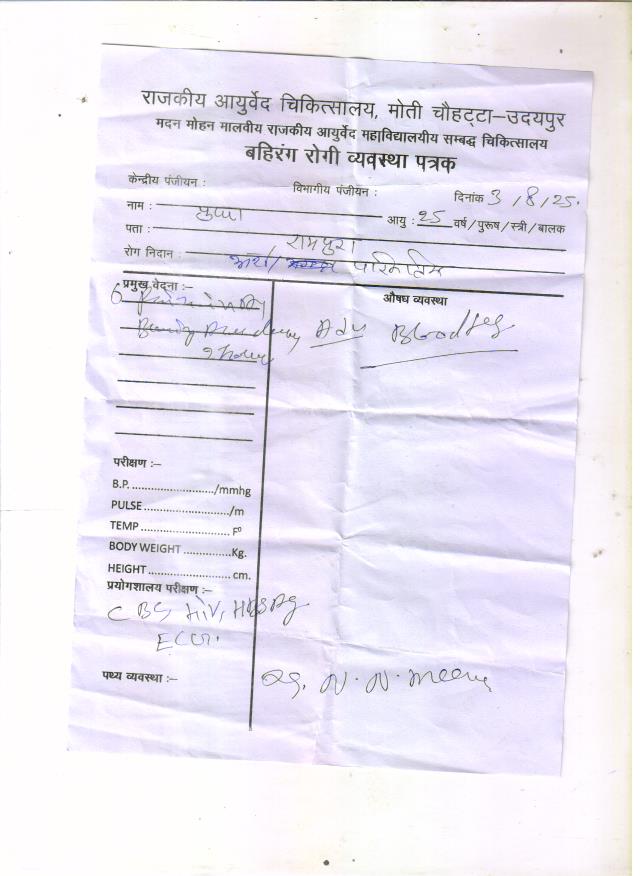 राजकीय आयुर्वेद चिकित्सालय, मोती चौहट्टा–उदयपुर
मदन मोहन मालवीय राजकीय आयुर्वेद महाविद्यालयीय सम्बद्ध चिकित्सालय
बहिरंग रोगी व्यवस्था पत्रक
केन्द्रीय पंजीयन : विभागीय पंजीयन : दिनांक 3/8/25.
नाम :– आयु : 25 वर्ष/पुरूष/स्त्री/बालक
पता : रामपुरा
रोग निदान :
प्रमुख वेदना :– औषध व्यवस्था
Adv Blood
परीक्षण :–
B.P. ........................../mmhg
PULSE ........................../m
TEMP ........................... Fº
BODY WEIGHT ..............Kg.
HEIGHT ......................... cm.
प्रयोगशालय परीक्षण :–
CBC, HIV, HBSAg
पथ्य व्यवस्था :– N. N. Meena